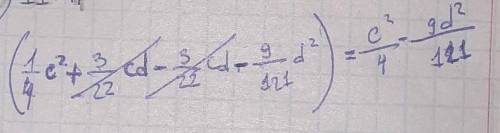 (1/4 c² + 3/22 cd - 3/22 cd - 9/121 d²) = c²/4 - 9d²/121